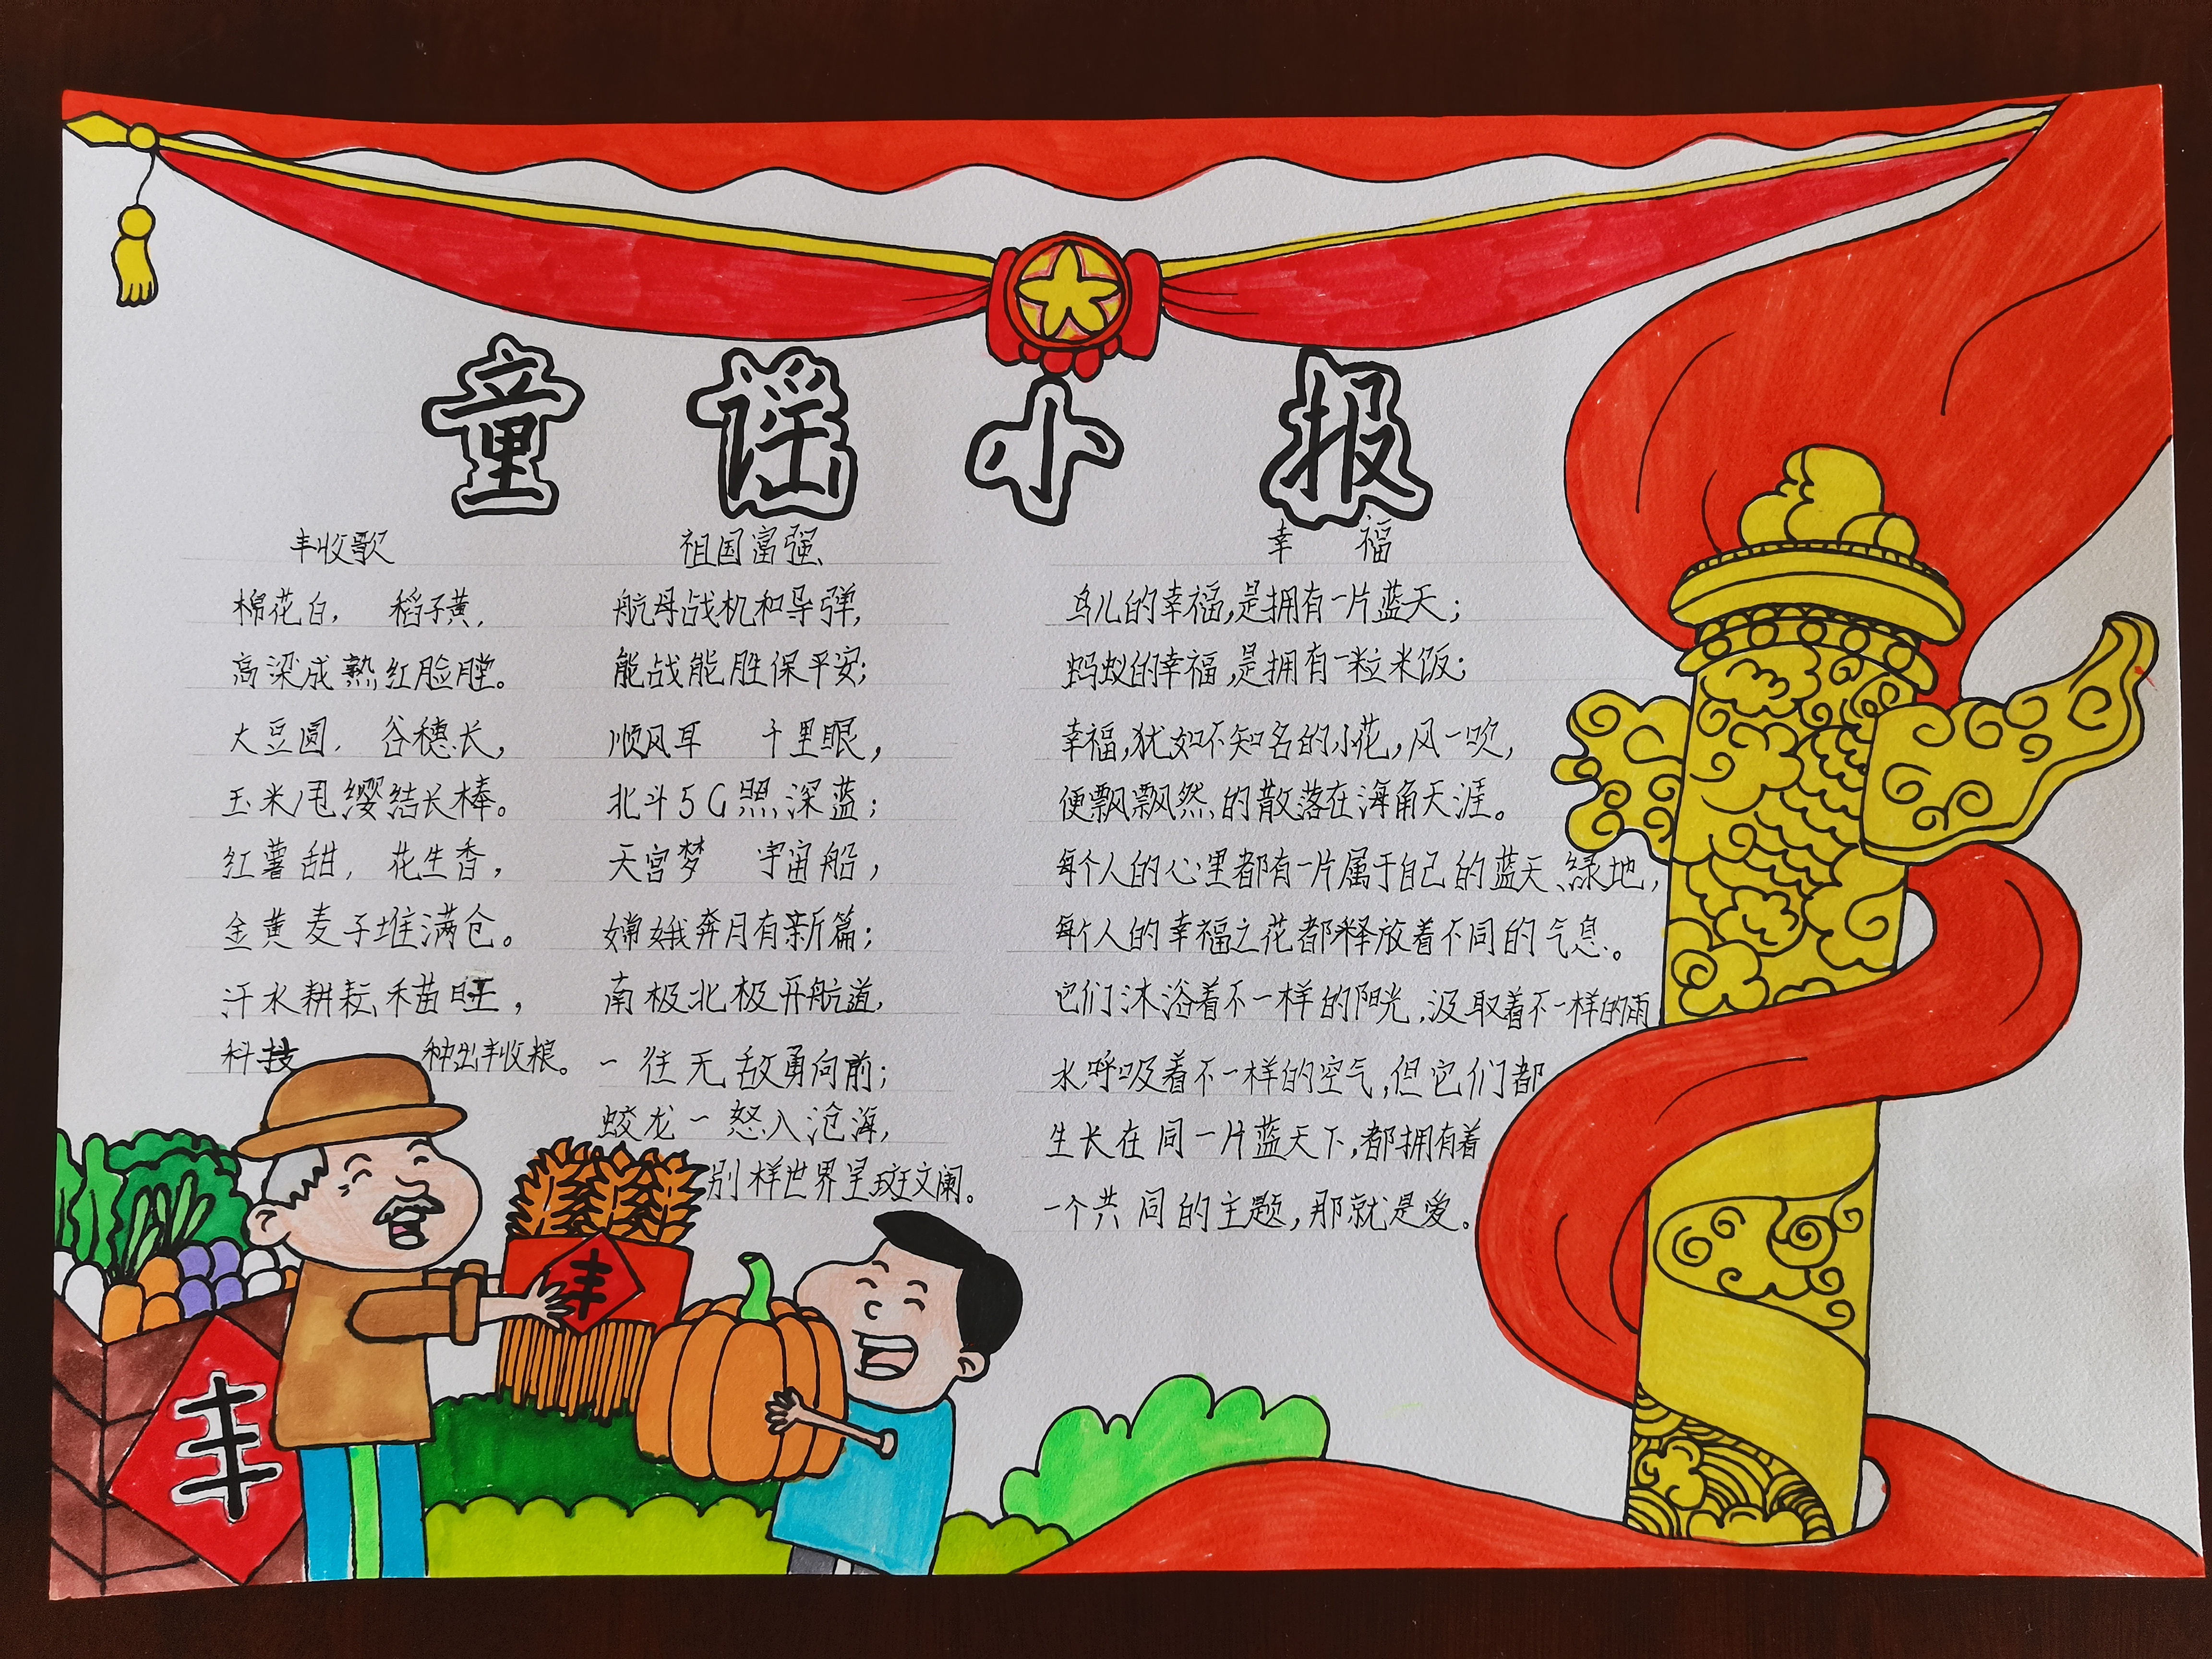 童谣小报
丰收歌
棉花白, 稻子黄,
高梁成熟红脸膛。
大豆圆, 谷穗长,
玉米甩缨结长棒。
红薯甜, 花生香,
金黄麦子堆满仓。
汗水耕耘禾苗旺,
科技 种出丰收粮。
祖国富强
航母战机和导弹,
能战能胜保平安;
顺风耳 千里眼,
北斗5G照深蓝;
天宫梦 宇宙船,
嫦娥奔月有新篇;
南极北极开航道,
一往无敌勇向前;
蛟龙一怒入沧海,
别样世界呈斑斓。
幸 福
鸟儿的幸福,是拥有一片蓝天;
蚂蚁的幸福,是拥有一粒米饭;
幸福,犹如不知名的小花,风一吹,
便飘飘然的散落在海角天涯。
每个人的心里都有一片属于自己的蓝天、绿地,
每个人的幸福之花都释放着不同的气息。
它们沐浴着不一样的阳光,汲取着不一样的雨
水呼吸着不一样的空气,但它们都
生长在同一片蓝天下,都拥有着
一个共同的主题,那就是爱。
丰
丰